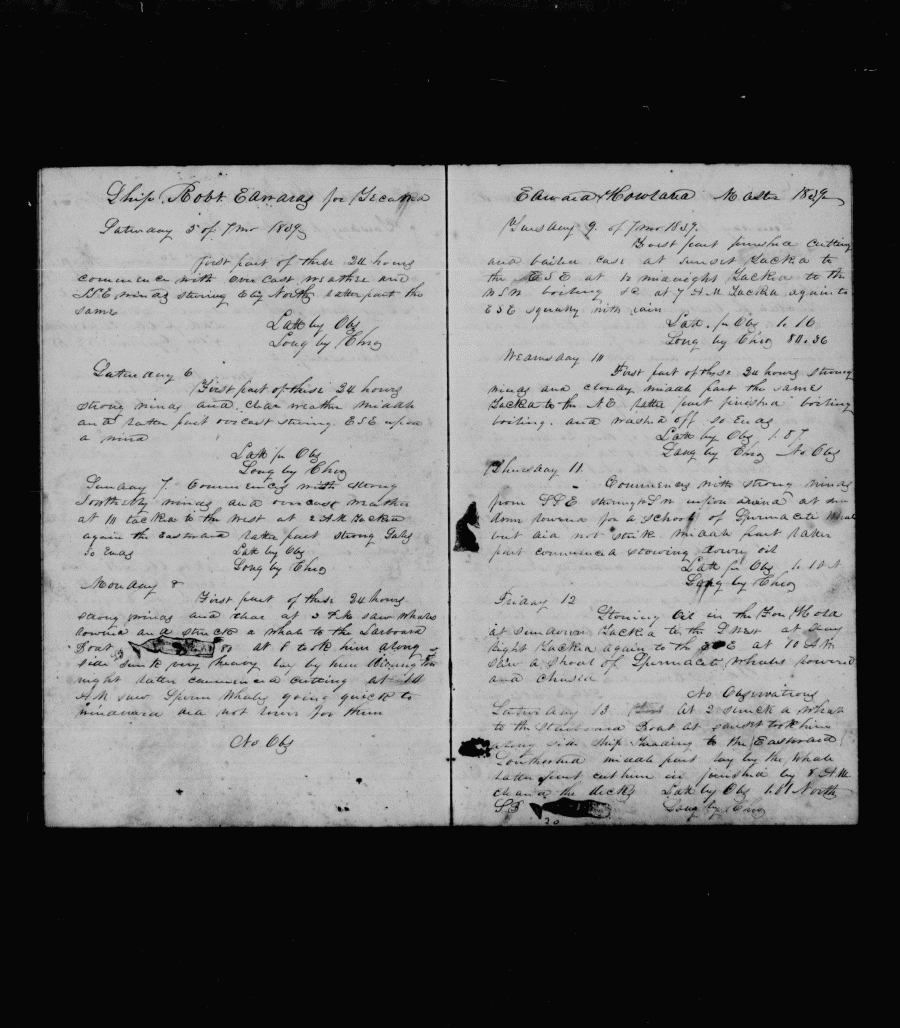 Ship Robt Edwards for
Saturday 5 of 7 mo 1839
First part of these 24 hours
commence with over cast weather and
SSE winds steering E by North latter part the
same
Latt by Obs
Long by Chro
Saturday 6
First part of these 24 hours
strong winds and clear weather middle
and latter part overcast steering ESE upon
a wind
Latt by Obs
Long by Chro
Sunday 7 Commences with strong
Southerly winds and overcast weather
at 10 tacked to the West at 2 A.M. Tacked
again the Eastward latter part strong Gales
So Ends Latt by Obs
Long by Chro
Monday 8
First part of these 24 hours
strong winds and clear at 3 P.M. saw whales
lowered and struck a whale to the Larboard
Boat 80 at 8 took him along
side sunk very heavy lay by him during the
night latter commenced cutting at 10
A.M. saw Sperm Whales going quick to
windward did not lower for them
No Obs
Edward Howland Master 1839
Tuesday 9 of 7 mo 1839
First part finished cutting
and bailed case at sunset Tacked to
the ESE at 12 midnight Tacked to the
WSW boiling &c at 7 A.M. Tacked again to
ESE squally with rain
Latt. by Obs 1. 16
Long by Chro 80.36
Wednsday 10
First part of these 24 hours strong
winds and cloudy middle part the same
Tacked to the NE latter part finished boiling
boiling. and washed off So Ends
Latt by Obs 1.57
Long by Chro No Obs
Thursday 11
Commences with strong winds
from SSE at sun
down lowered for a school of Spermaceti Whales
but did not strike middle part latter
part commenced stowing down oil
Latt by Obs
Long by Chro
Friday 12
Stowing Oil in the Fore Hold
at sundown Tacked to the SWest at
night Tacked again to the E at 10 A.M.
saw a shoal of Spermaceti Whales lowered
and chased
No Observations
Saturday 13 At 2 struck a whale
to the Starboard Boat at sunset took him
along side ship heading to the Eastward
Southerd middle part lay by the whale
latter part cut him in finished by 8 A.M.
cleared the decks Latt by Obs 1.01 North
Long by Chro
20